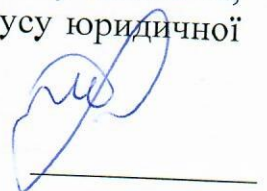 усу юридичної